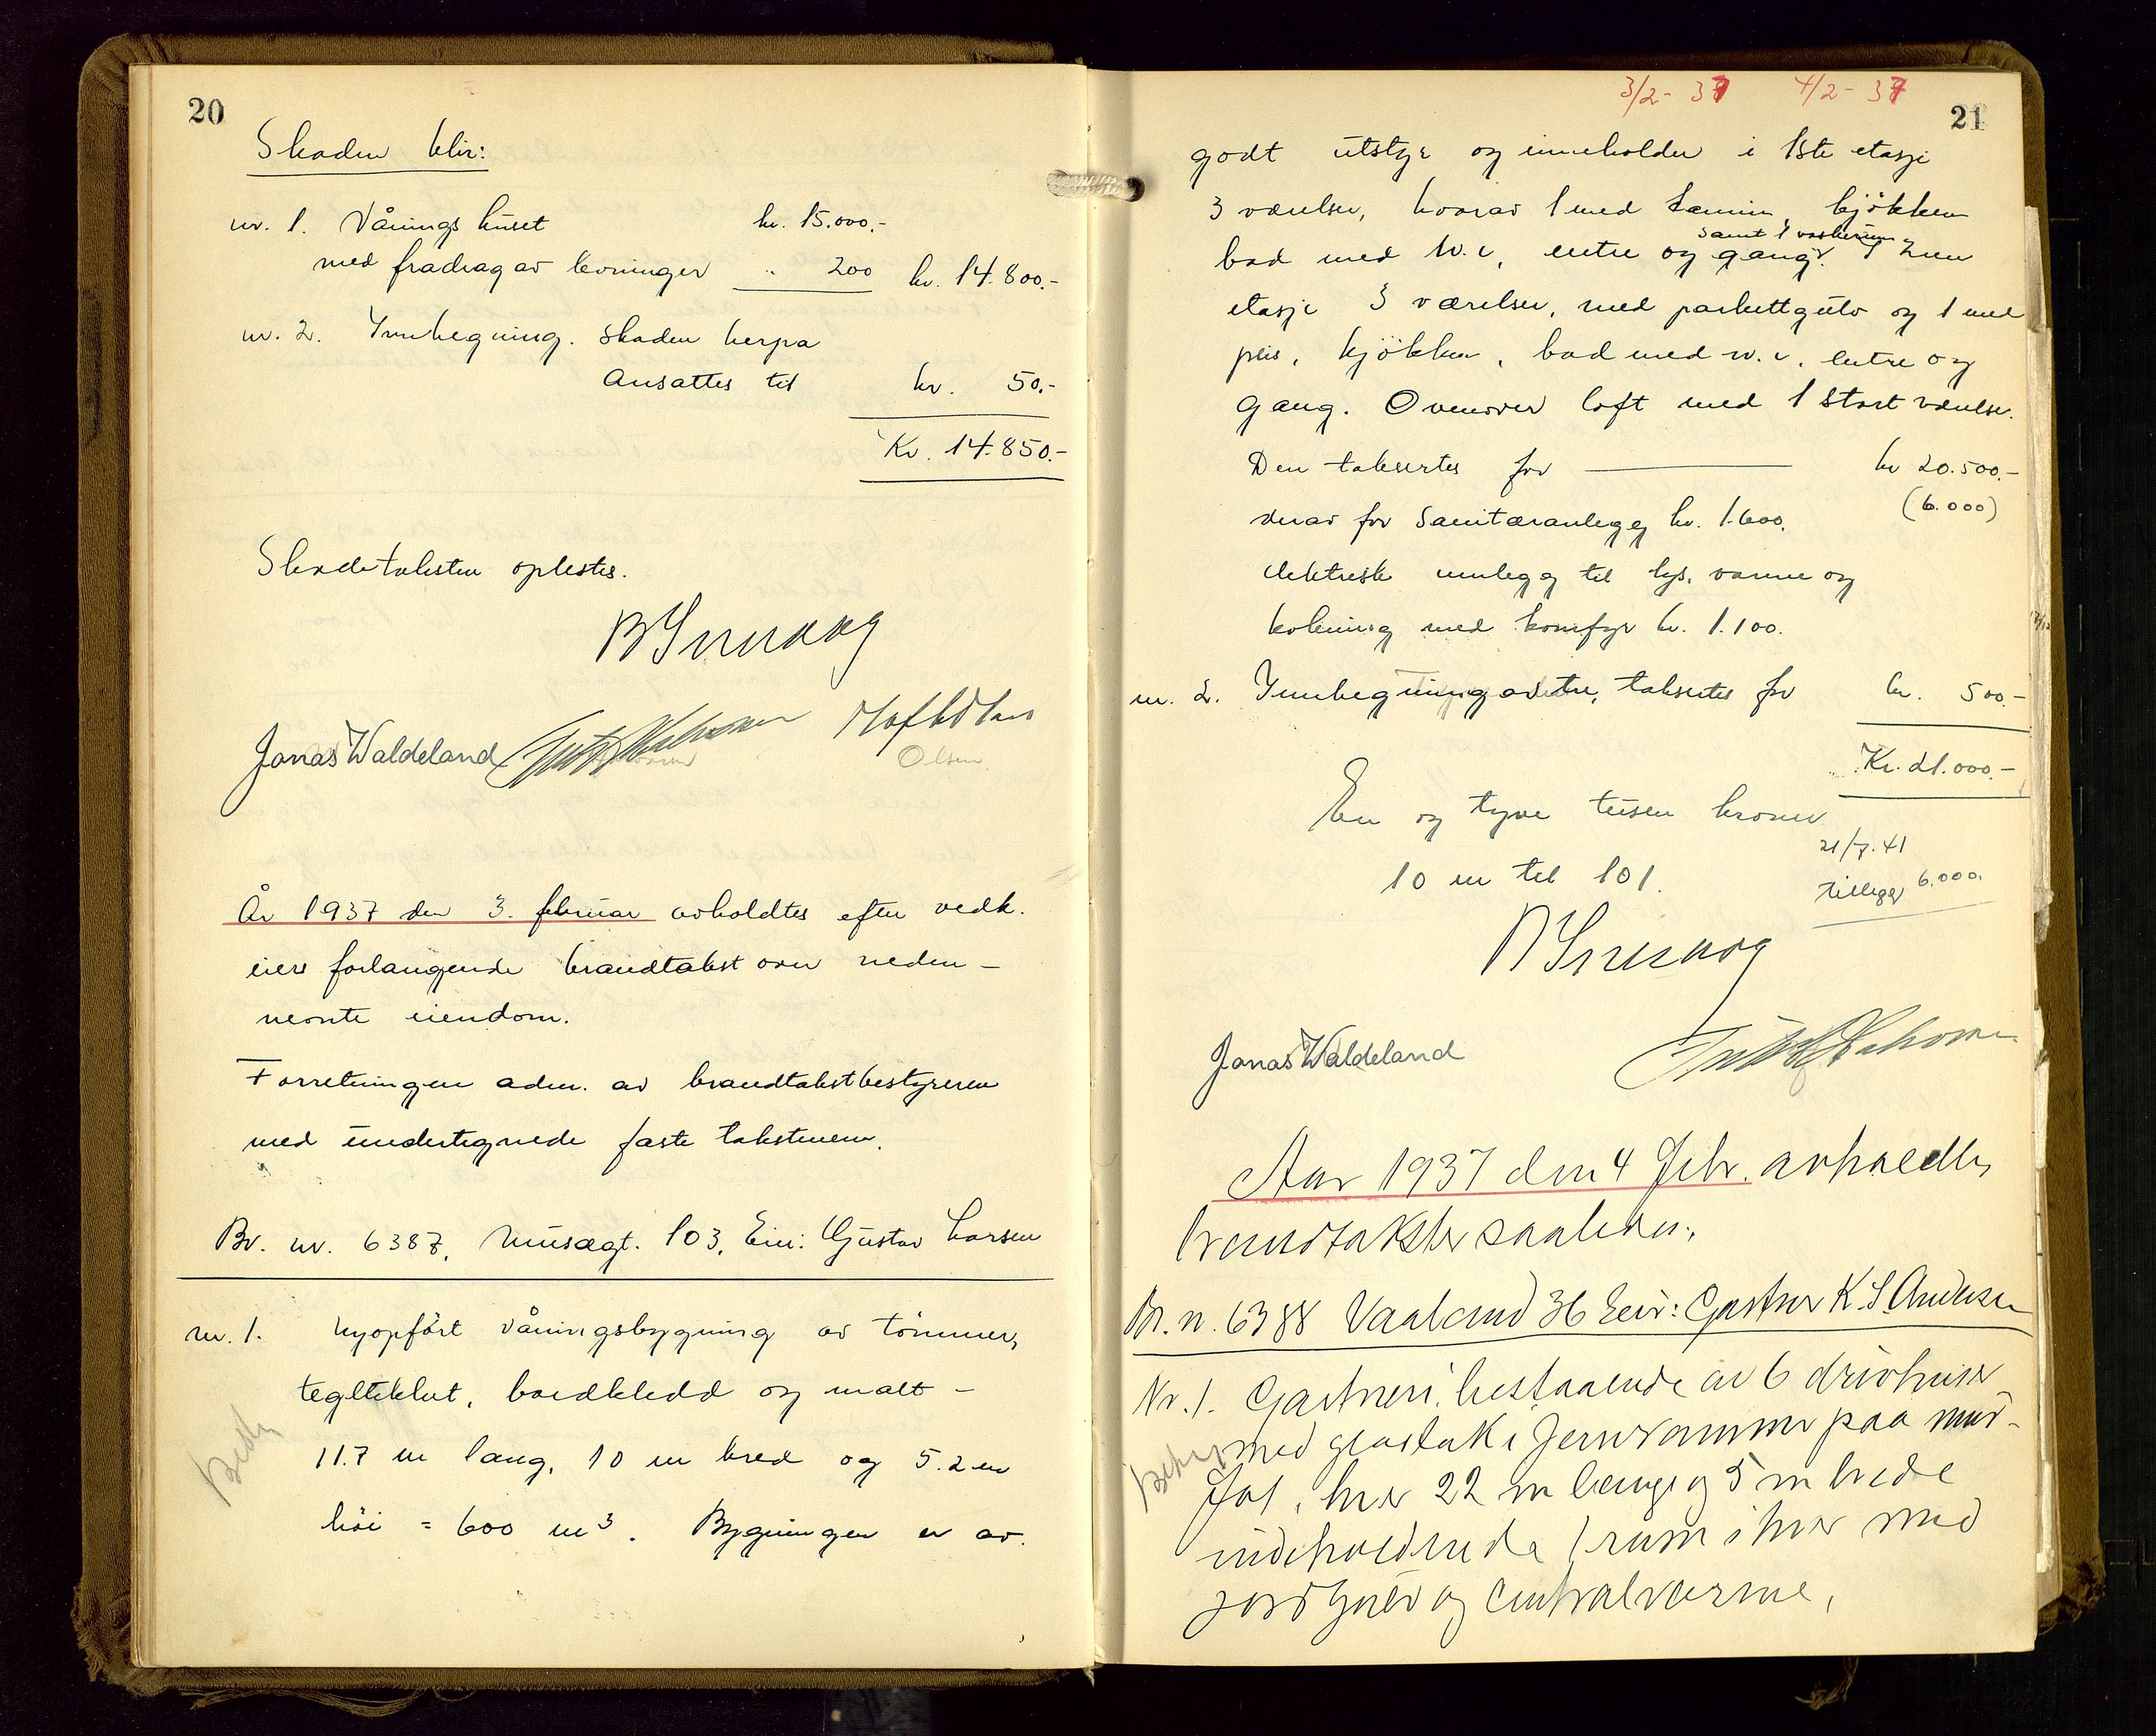 20
Skaden blir:
nr. 1. Våningshuset kr. 15.000.-
med fradrag av levninger " 200 kr. 14.800.-
nr. 2. Innhegning. Skaden herpå
ansattes til kr. 50.-
Kr. 14.850.-
Skadetaksten oplestes.
Jonas Waldeland
Olsen
År 1937 den 3. februar avholdtes efter vedk.
eiers forlangende brandtakst over neden-
nevnte eiendom.
Forretningen adm. av brandtakstbestyreren
med undertegnede faste takstmenn.
Br. nr. 6387, Musægt. 103, Eier: Gustav Larsen
nr. 1. Nyopført våningsbygning av tømmer,
teglteklet, bordkledd og malt -
11.7 m lang, 10 m bred og 5.2 m
høi = 600 m³. Bygningen er av
3/2-37 4/2-37
21
godt utstyr og inneholder i 1ste etasje
3 værelser, hvorav 1 med kamin, kjøkken
samt 1 vaskerum
bad med w.c, entre og gang. I 2nen
etasje 3 værelser, med parkettgulv og 1 med
peis, kjøkken, bad med w.c. entre og
gang. Ovenover loft med 1 stort værelse.
Den takseres for kr 20.500.-
(6.000)
derav for Sanitæranlegg kr. 1.600.
elektrisk innlegg til lys, varme og
kokning med komfyr kr. 1.100.
nr. 2. Innhegning av tre, takseres for kr. 500.-
Kr. 21.000.-
En og tyve tusen kroner
21/7.41
10 m til 101.
tillegg 6.000.
Jonas Waldeland
Aar 1937 den 4 Febr. avholdtes
brandtakster saaledes:
Br. n. 6388 Vaaland 36 Eier: Gartner K. S. Andersen
Nr. 1. Gartneri bestaaende av 6 drivhuser
med glastak i Jernrammer paa mur-
fot, hver 22 m lange og 5 m brede
indeholdende 1 rum i hver med
jordgulv og centralvarme,